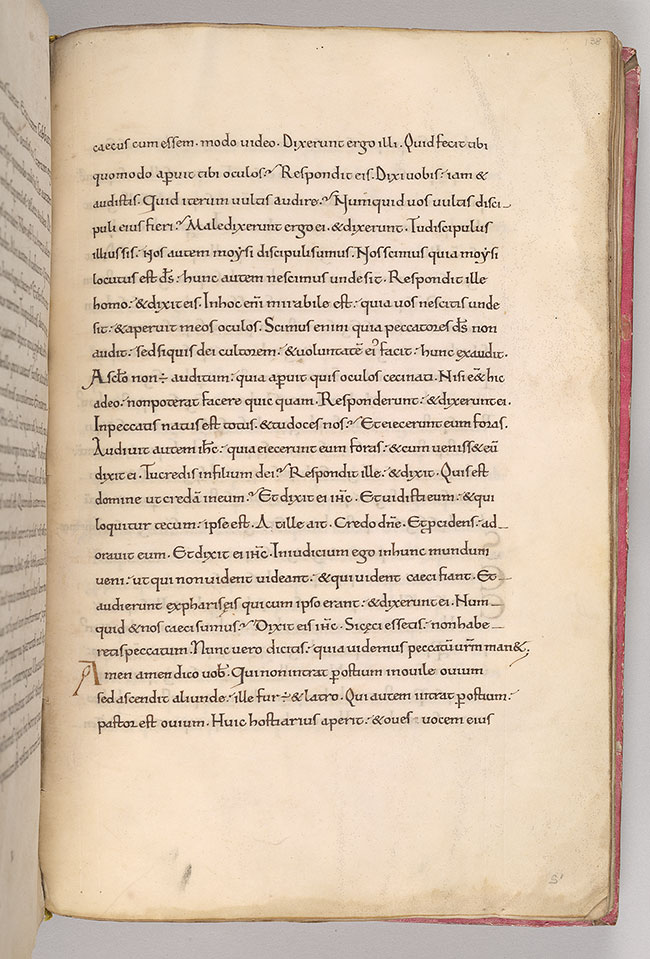 138
caecus cum essem. modo video. Dixerunt ergo illi. Quid fecit tibi
quomodo ap̲uit tibi oculos? Respondit eis. Dixi vobis: iam &
audistis. Quid iterum vultis audire? Numquid vos vultis disci_
puli eius fieri? Maledixerunt ergo ei. & dixerunt. Tu discipulus
illius sis: Nos autem moẏsi discipuli sumus. Nos scimus quia moẏsi
locutus est d̄s: hunc autem nescimus unde sit. Respondit ille
homo: & dixit eis. In hoc eni̅ mirabile est: quia vos nescitis unde
sit: & aperuit meos oculos. Scimus enim quia peccatores d̄s non
audit: sed si quis dei cultorem: & voluntatē ei᾽ facit: hunc exaudit.
A sclo̅ non ÷ auditum: quia ap̲uit quis oculos ceci nati. Nisi e&̅ hic
a deo: non poterat facere quic quam. Responderunt: & dixerunt ei.
In peccatis natus est totus. & tu doces nos? Et eiecerunt eum foras.
Audivit autem ih̅c: quia eiecerunt eum foras: & cum veniss& eū
dixit ei. Tu credis in filium dei? Respondit ille: & dixit. Quis est
domine ut credā in eum? Et dixit ei ih̅c. Et vidisti eum: & qui
loquitur tecum: ipse est. At ille ait. Credo dn̄e. Et p̲cidens: ad_
oravit eum. Et dixit ei ih̅c. In iudicium ego in hunc mundum
veni: ut qui non vident videant: & qui vident caeci fiant. Et_
audierunt ex phariseis qui cum ipso erant: & dixerunt ei. Num_
quid & nos caeci sumus? Dixit eis ih̅c. Si ceci essetis: non habe_
retis peccatum. Nunc vero dicitis: quia videmus peccatū vr̄m man&.
Amen amen dico vob̅. Qui non intrat p̲ ostium in ovile ovium
sed ascendit aliunde: ille fur ÷ & latro. Qui autem intrat p̲ ostium:
pastor est ovium. Huic hostiarius aperit: & oves vocem eius